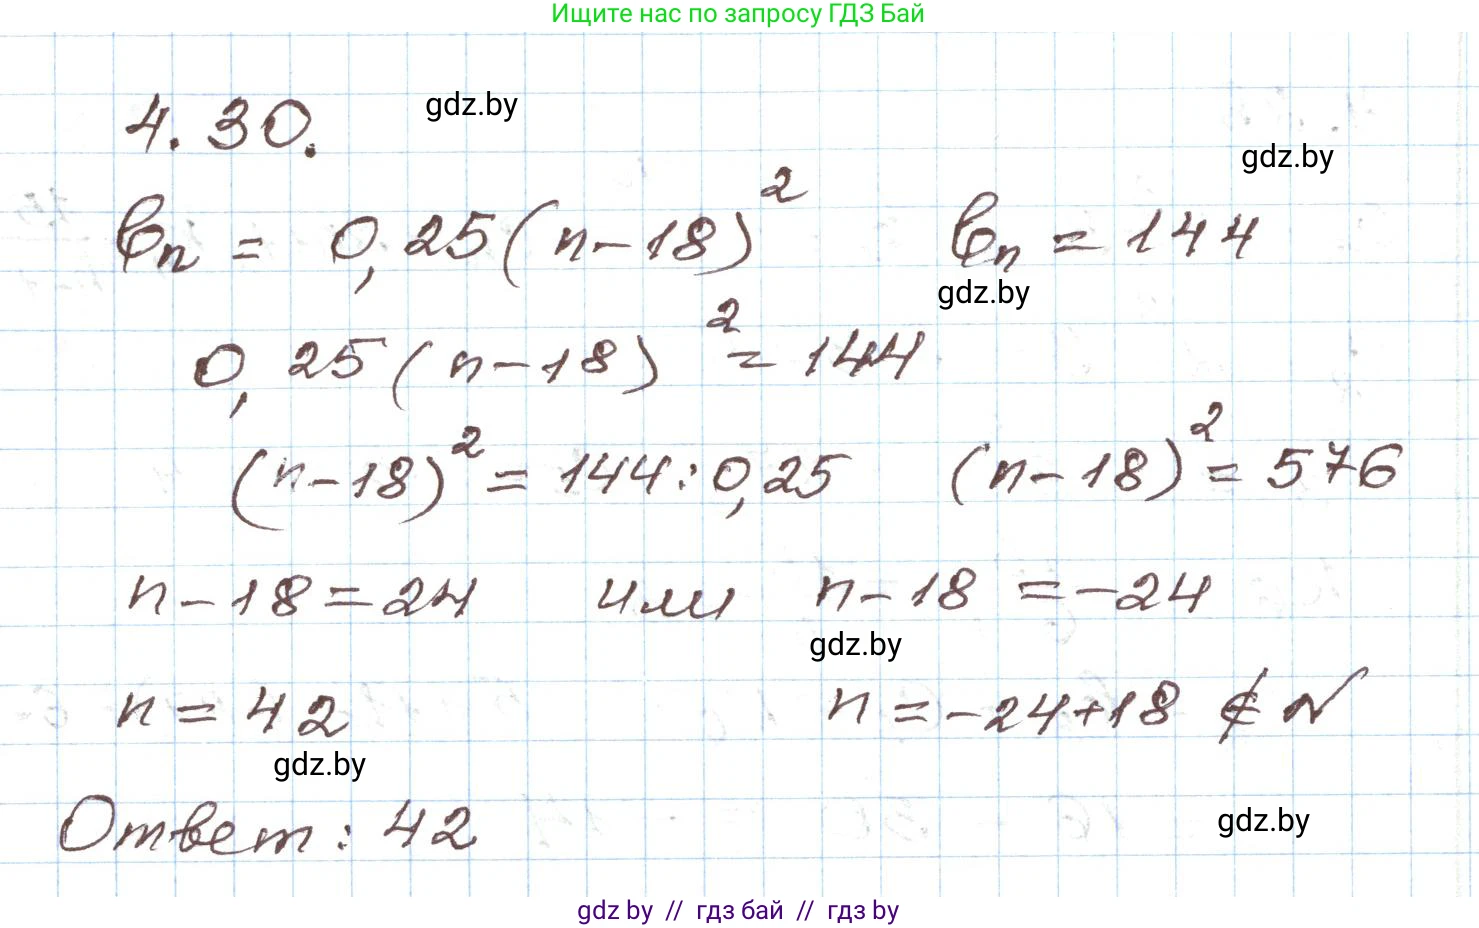 Ищите нас по запросу ГДЗ Бай
4.30. gdz.by
gdz.by
bn = 0,25(n-18)² bn = 144
gdz.by
0,25(n-18)² = 144
(n-18)² = 144:0,25 (n-18)² = 576
n-18=24 или n-18 = -24
gdz.by
n = 42 n = -24+18 ∉ N
gdz.by
gdz.by
Ответ: 42
gdz by // гдз бай // гдз by